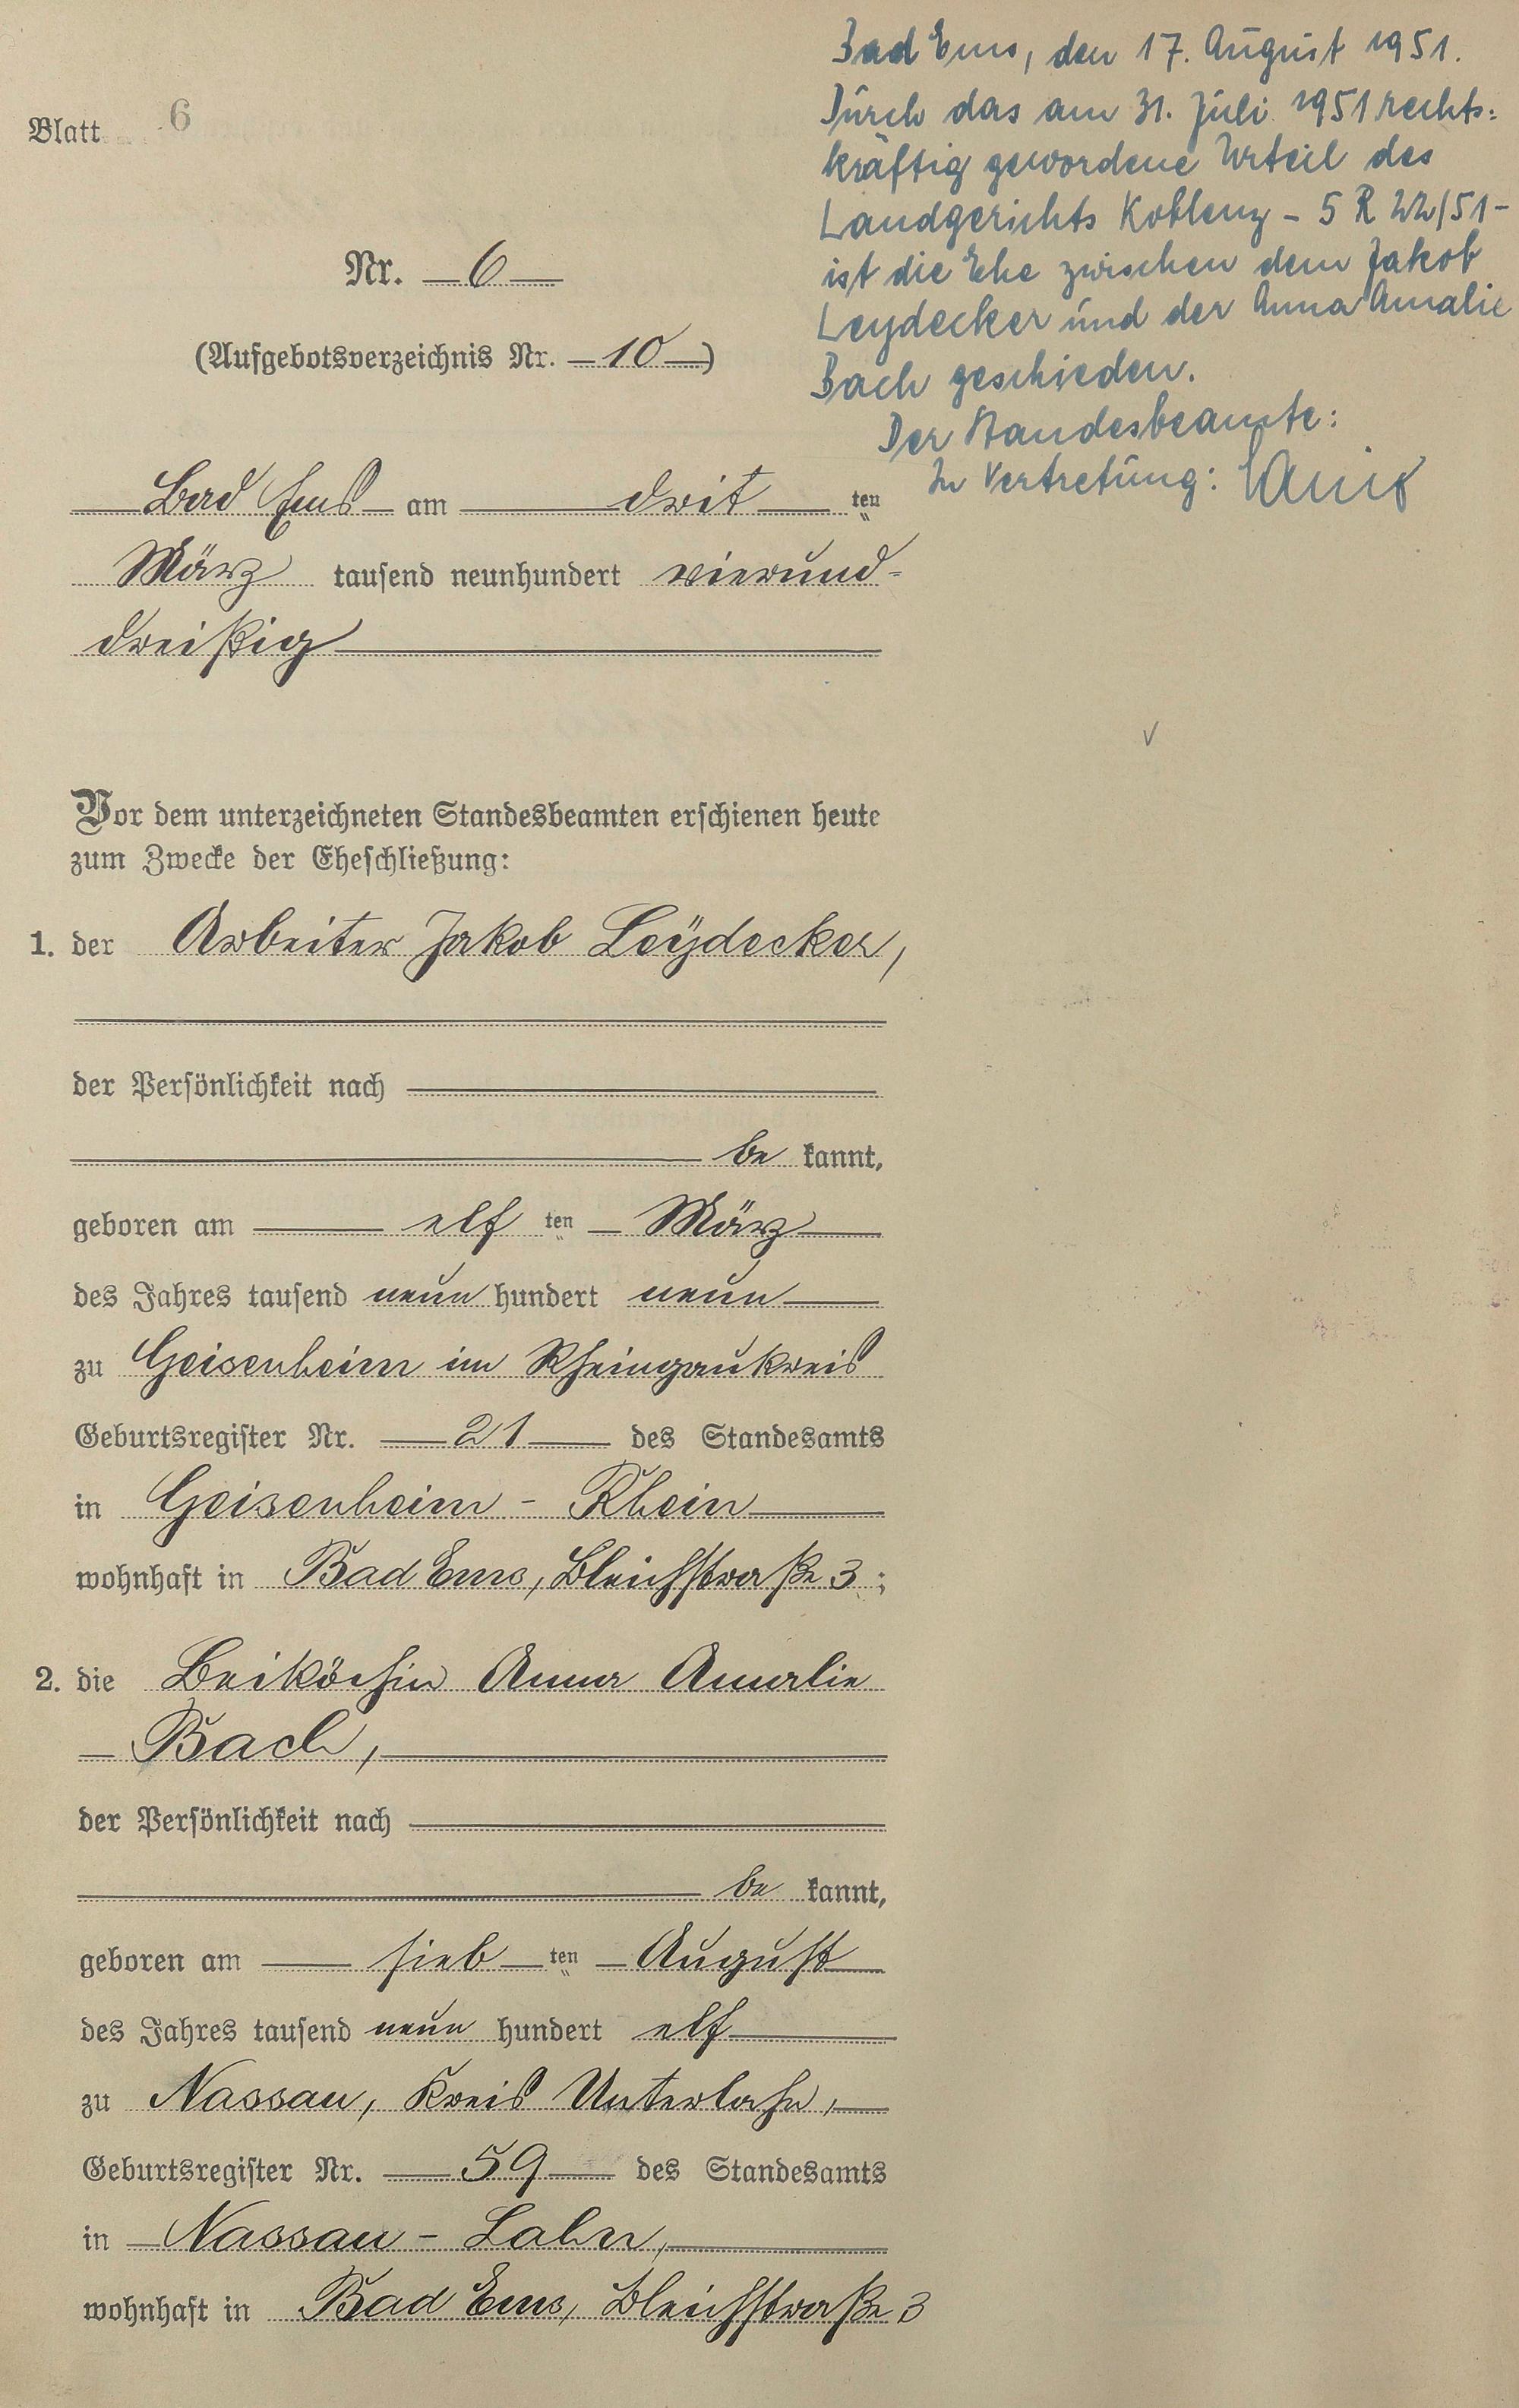 Blatt 6
Bad Ems, den 17. August 1951.
Durch das am 31. Juli 1951 rechts=
kräftig gewordene Urteil des
Landgerichts Koblenz - 5 R 22/51 -
ist die Ehe zwischen dem Jakob
Leydecker und der Anna Amalie
Bach geschieden.
Der Standesbeamte:
In Vertretung:
Nr. 6
(Aufgebotsverzeichnis Nr. 10)
Bad Ems am drit ten
März tausend neunhundert vierund-
dreißig
Vor dem unterzeichneten Standesbeamten erschienen heute
zum Zwecke der Eheschließung:
1. der Arbeiter Jakob Leÿdecker,
der Persönlichkeit nach
be kannt,
geboren am elf ten März
des Jahres tausend neun hundert neun
zu Geisenheim im Rheingaukreis
Geburtsregister Nr. 21 des Standesamts
in Geisenheim - Rhein
wohnhaft in Bad Ems, Bleichstraße 3;
2. die Beiköchin Anna Amalie
Bach,
der Persönlichkeit nach
be kannt,
geboren am sieb ten August
des Jahres tausend neun hundert elf
zu Nassau, Kreis Unterlahn,
Geburtsregister Nr. 59 des Standesamts
in Nassau - Lahn,
wohnhaft in Bad Ems, Bleichstraße 3